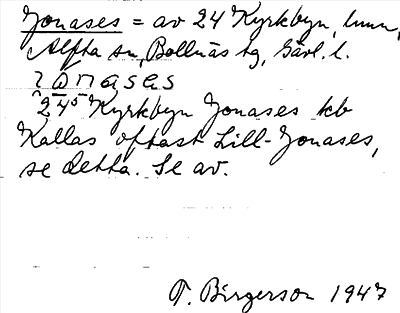 Jonases = av 24 Kyrkbyn, hmn,
Alfta sn, Bollnäs tg, Gävl. l.
jonases
24⁵ Kyrkbyn Jonases kb
Kallas oftast Lill-Jonases,
se detta. Se av.
T. Birgerson 1947